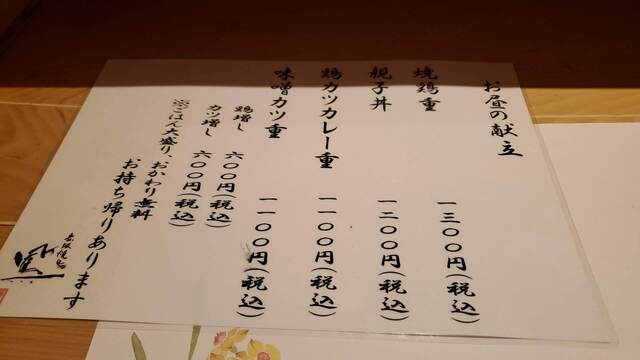 お昼の献立
焼鶏重 一三〇〇円(税込)
親子丼 一二〇〇円(税込)
鶏カツカレー重 一一〇〇円(税込)
味噌カツ重 一一〇〇円(税込)
鶏増し 六〇〇円(税込)
カツ増し 六〇〇円(税込)
※ごはん大盛り、おかわり無料
お持ち帰りあります